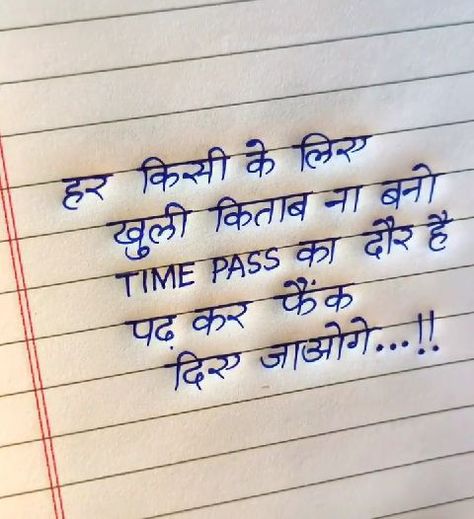 हर किसी के लिए
खुली किताब ना बनो
TIME PASS का दौर है
पढ़ कर फैंक
दिए जाओगे...!!